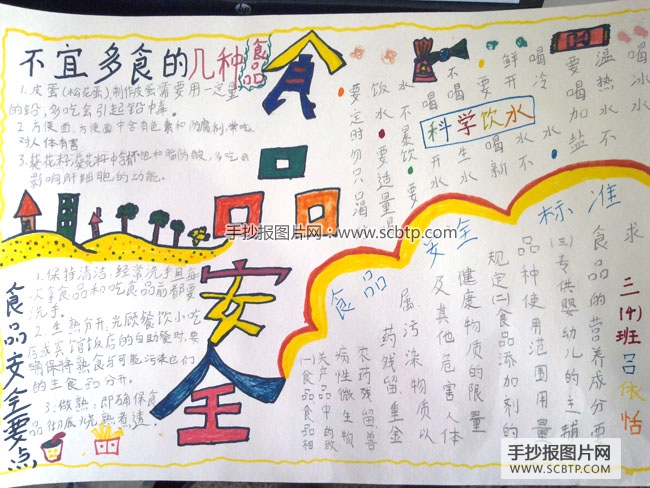 不宜多食的几种食品
1.皮蛋(松花蛋)制作皮蛋需要用一定量
的铅,多吃会引起铅中毒。
2.方便面:方便面中含有色素和防腐剂,常吃
对人体有害
3.葵花籽:葵花籽中含
影响肝细胞的功能。
食品安全
科学饮水
要定时
饮水
不喝生水
要喝开水
食品安全要点
1.保持清洁:经常洗手且每
次拿食品和吃食品前都要
洗手。
2.生熟分开:光顾餐饮小吃
店或宾馆饭店的自助餐时,要
确保将熟食与可能污染它们
的生食品分开。
3.做熟:即确保食
品彻底烧熟煮透。
食品安全标准
(一)食品食品相
关产品中的致
病性微生物
农药残留兽
药残留重金
属污染物质以
及其他危害人体
健康物质的限量
规定(二)食品添加剂的
品种使用范围用量
(三)专供婴幼儿的主辅
食品的营养成分要
求
三(4)班吕依恬
手抄报图片网:www.scbtp.com
手抄报图片网
WWW.SCBTP.COM